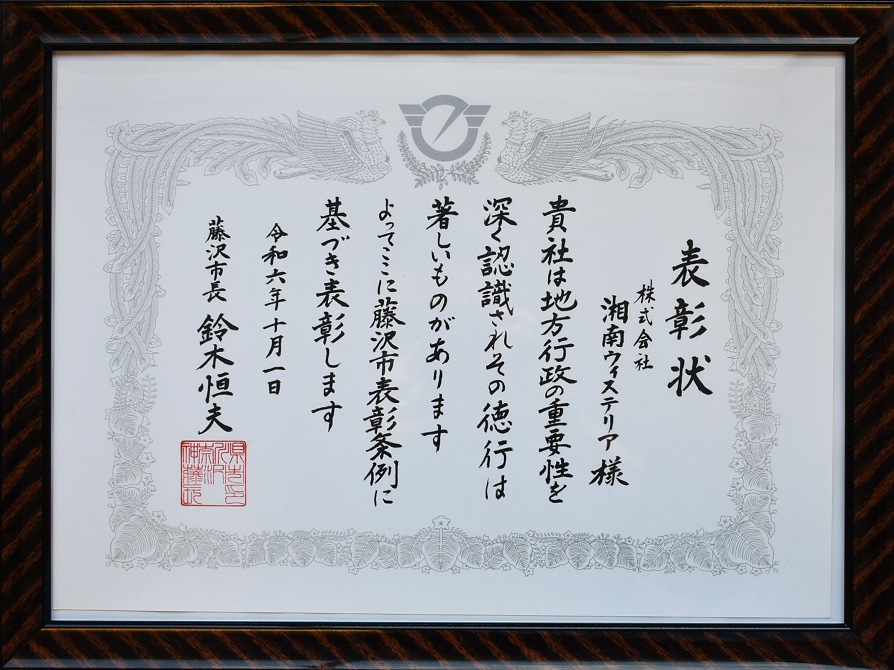 表彰状
株式会社
湘南ウィステリア 様
貴社は地方行政の重要性を
深く認識されその徳行は
著しいものがあります
よってここに藤沢市表彰条例に
基づき表彰します
令和六年十月一日
藤沢市長 鈴木恒夫